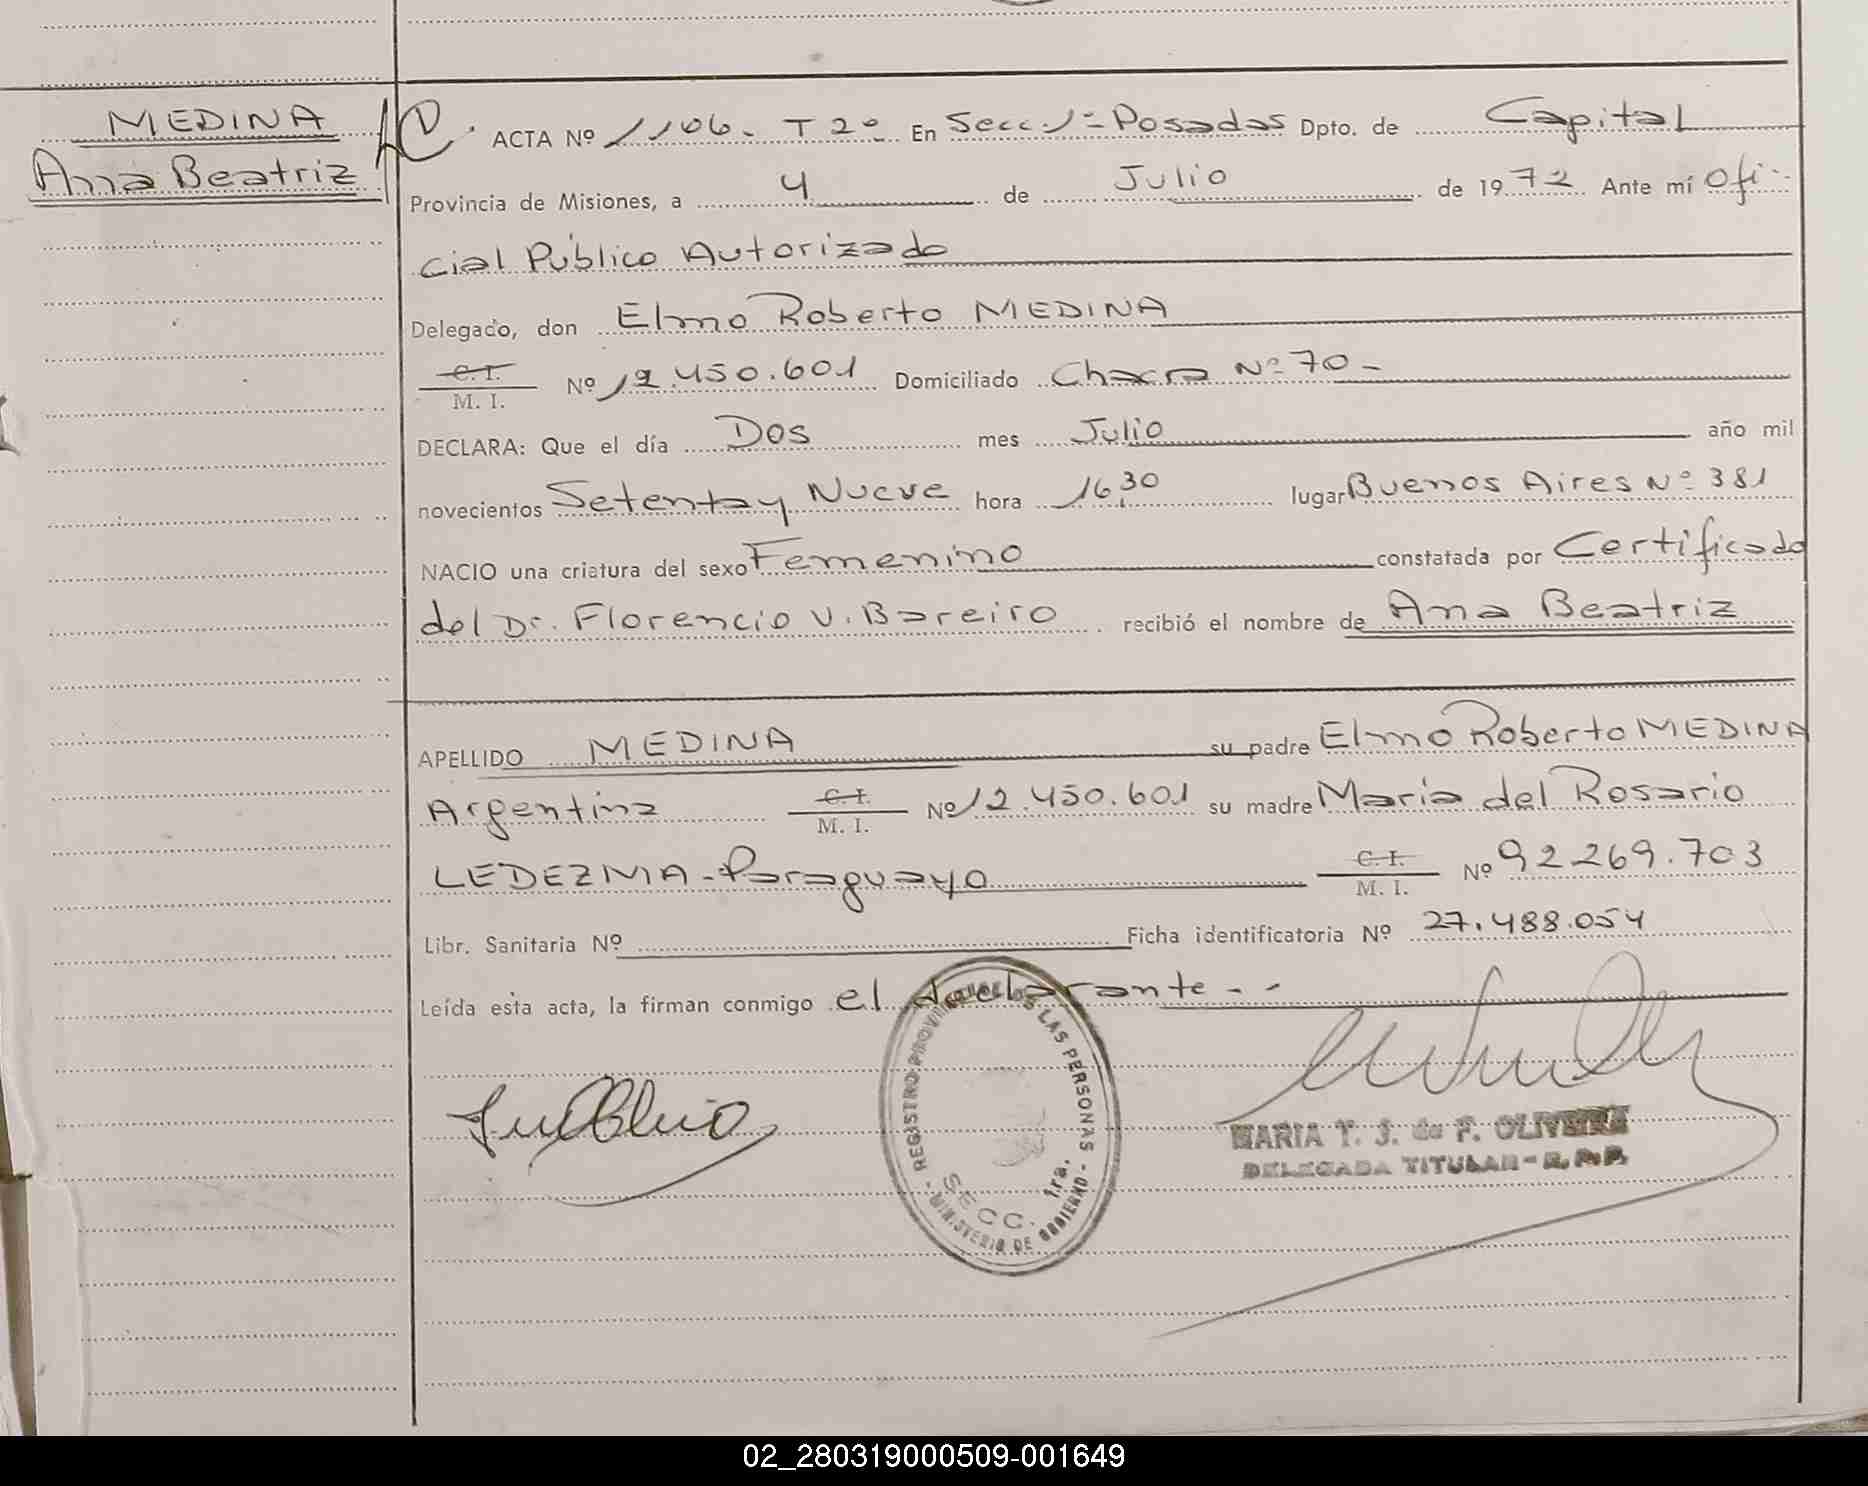 MEDINA
Ana Beatriz
ACTA Nº 1106. T 2º En Secc. 1ª Posadas Dpto. de Capital
Provincia de Misiones, a 4 de Julio de 1972 Ante mí Ofi-
cial Público Autorizado
Delegado, don Elmo Roberto MEDINA
C. I.
M. I. Nº 12.450.601 Domiciliado Chacra Nº 70-
DECLARA: Que el día Dos mes Julio año mil
novecientos Setenta y Nueve hora 16 30 lugar Buenos Aires Nº 381
NACIO una criatura del sexo Femenino constatada por Certificado
del Dr. Florencio V. Bareiro recibió el nombre de Ana Beatriz
APELLIDO MEDINA su padre Elmo Roberto MEDINA
Argentina C. I. M. I. Nº 12.450.601 su madre Maria del Rosario
LEDEZMA - Paraguaya C. I. M. I. Nº 92269.703
Libr. Sanitaria Nº Ficha identificatoria Nº 27.488.054
Leída esta acta, la firman conmigo el declarante - -
REGISTRO PROVINCIAL DE LAS PERSONAS
- MINISTERIO DE GOBIERNO -
SECC. 1ra.
MARIA T. J. de F. OLIVEIRA
DELEGADA TITULAR - R. P. P.
02_280319000509-001649